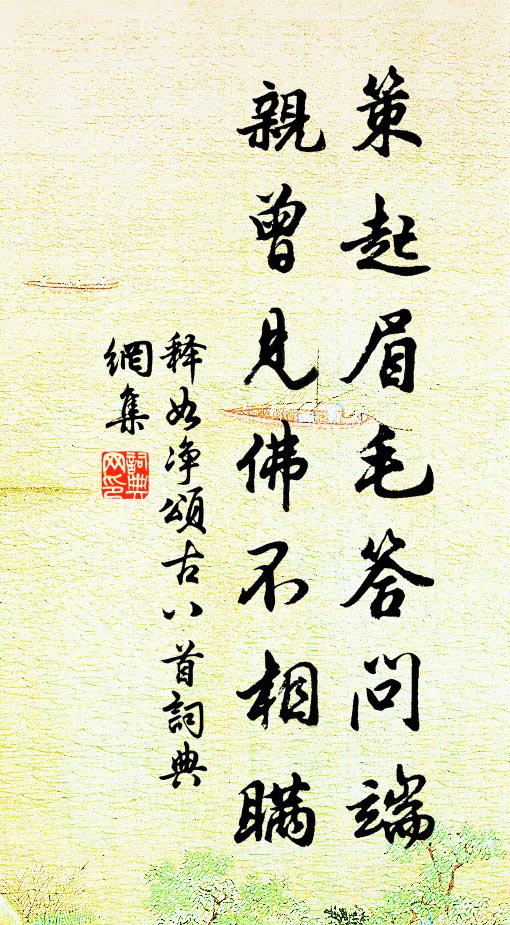 策起眉毛答問端
親曾見佛不相瞞
释如净頌古八首詞典
網集
詞典
网印